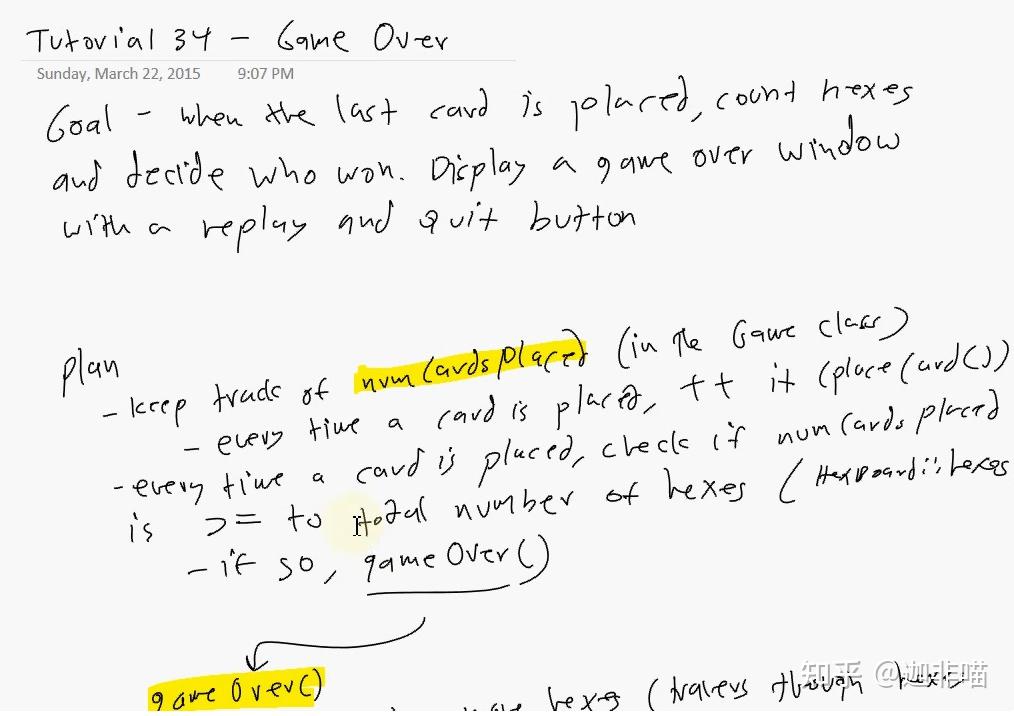 Tutorial 34 - Game Over
Sunday, March 22, 2015 9:07 PM
Goal - when the last card is placed, count hexes
and decide who won. Display a game over window
with a replay and quit button
plan
- keep track of numCardsPlaced (in the Game class)
- every time a card is placed, ++ it (placeCard())
- every time a card is placed, check if numCardsPlaced
is >= to total number of hexes (HexBoard::hexes
- if so, gameOver()
gameOver()
hexes (travers through hexes
知乎 @迦非喵